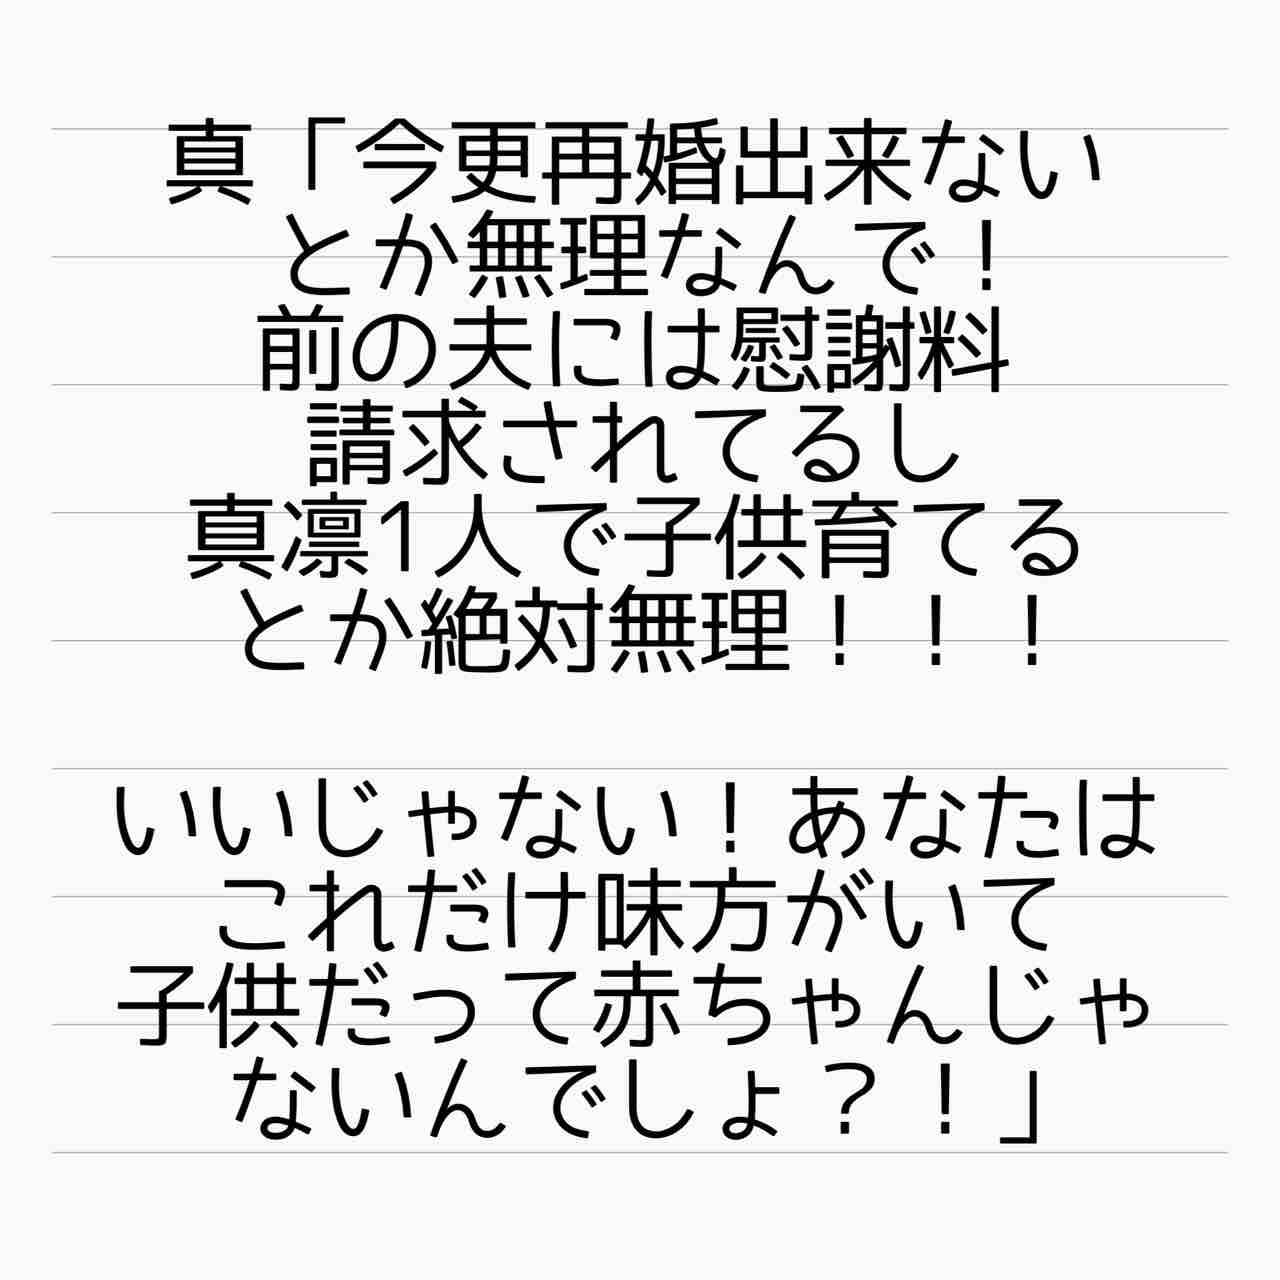 真「今更再婚出来ない
とか無理なんで！
前の夫には慰謝料
請求されてるし
真凛1人で子供育てる
とか絶対無理！！！
いいじゃない！あなたは
これだけ味方がいて
子供だって赤ちゃんじゃ
ないんでしょ？！」